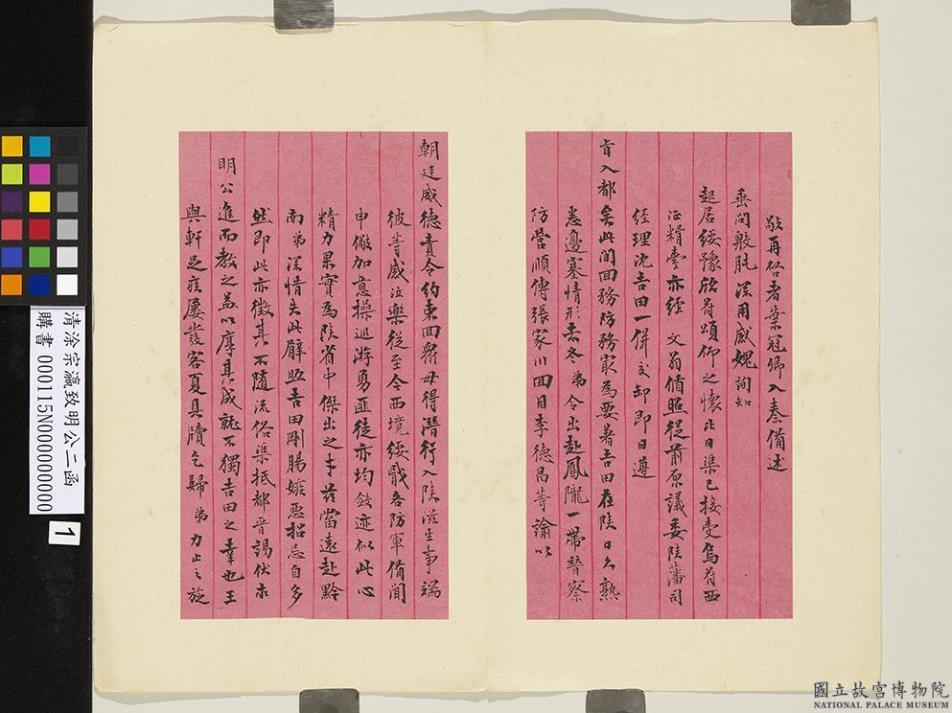 敬再啓者葉冠卿入秦備述
垂問殷肫深用感媿詢知
起居綏豫欣符頌仰之懷止日渠已接受烏荷西
征糧臺亦經 文翁循照從前原議委陝藩司
經理沈吉田一併交卸即日遵
旨入都矣此間回務防務最為要著吉田在陝日久熟
悉邊塞情形去冬弟令出赴鳳隴一帶督察
防營順傳張家川回目李德昌等諭以
朝廷威德責令約束回衆毋得潛行入陝滋生事端
彼等感泣樂從至今西境綏戢各防軍備聞
申儆加意操巡游勇匪徒亦均斂迹似此心
精力果實為陝省中傑出之才茲當遠赴黔
南弟深惜失此臂助吉田剛腸嫉惡招忌自多
然即此亦徵其不隨流俗渠抵都晉謁伏求
明公進而教之益以摩其成就不獨吉田之幸也王
與軒足疾屢發客夏具牘乞歸弟力止之旋
清涂宗瀛致明公二函
購書 0001115N000000000
1
國立故宮博物院
NATIONAL PALACE MUSEUM